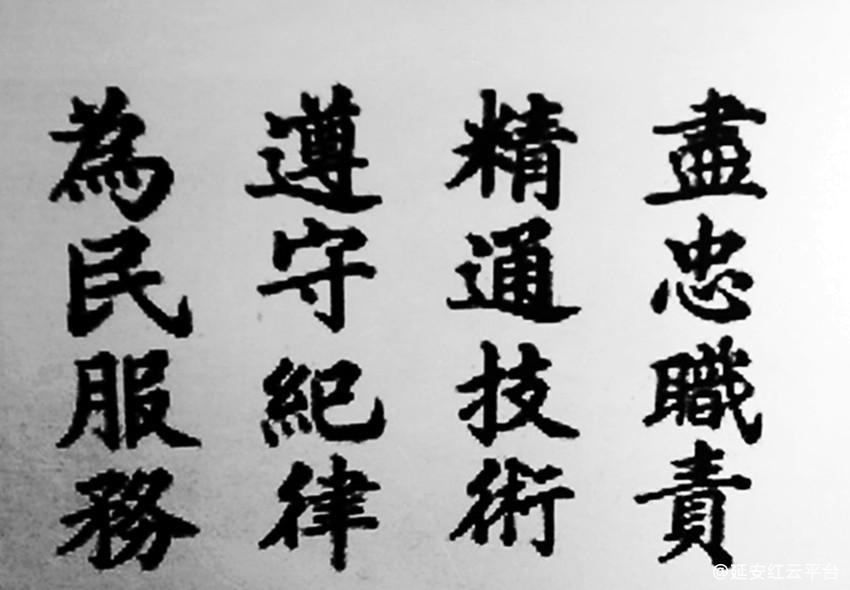 盡忠職責
精通技術
遵守紀律
為民服務
@延安红云平台